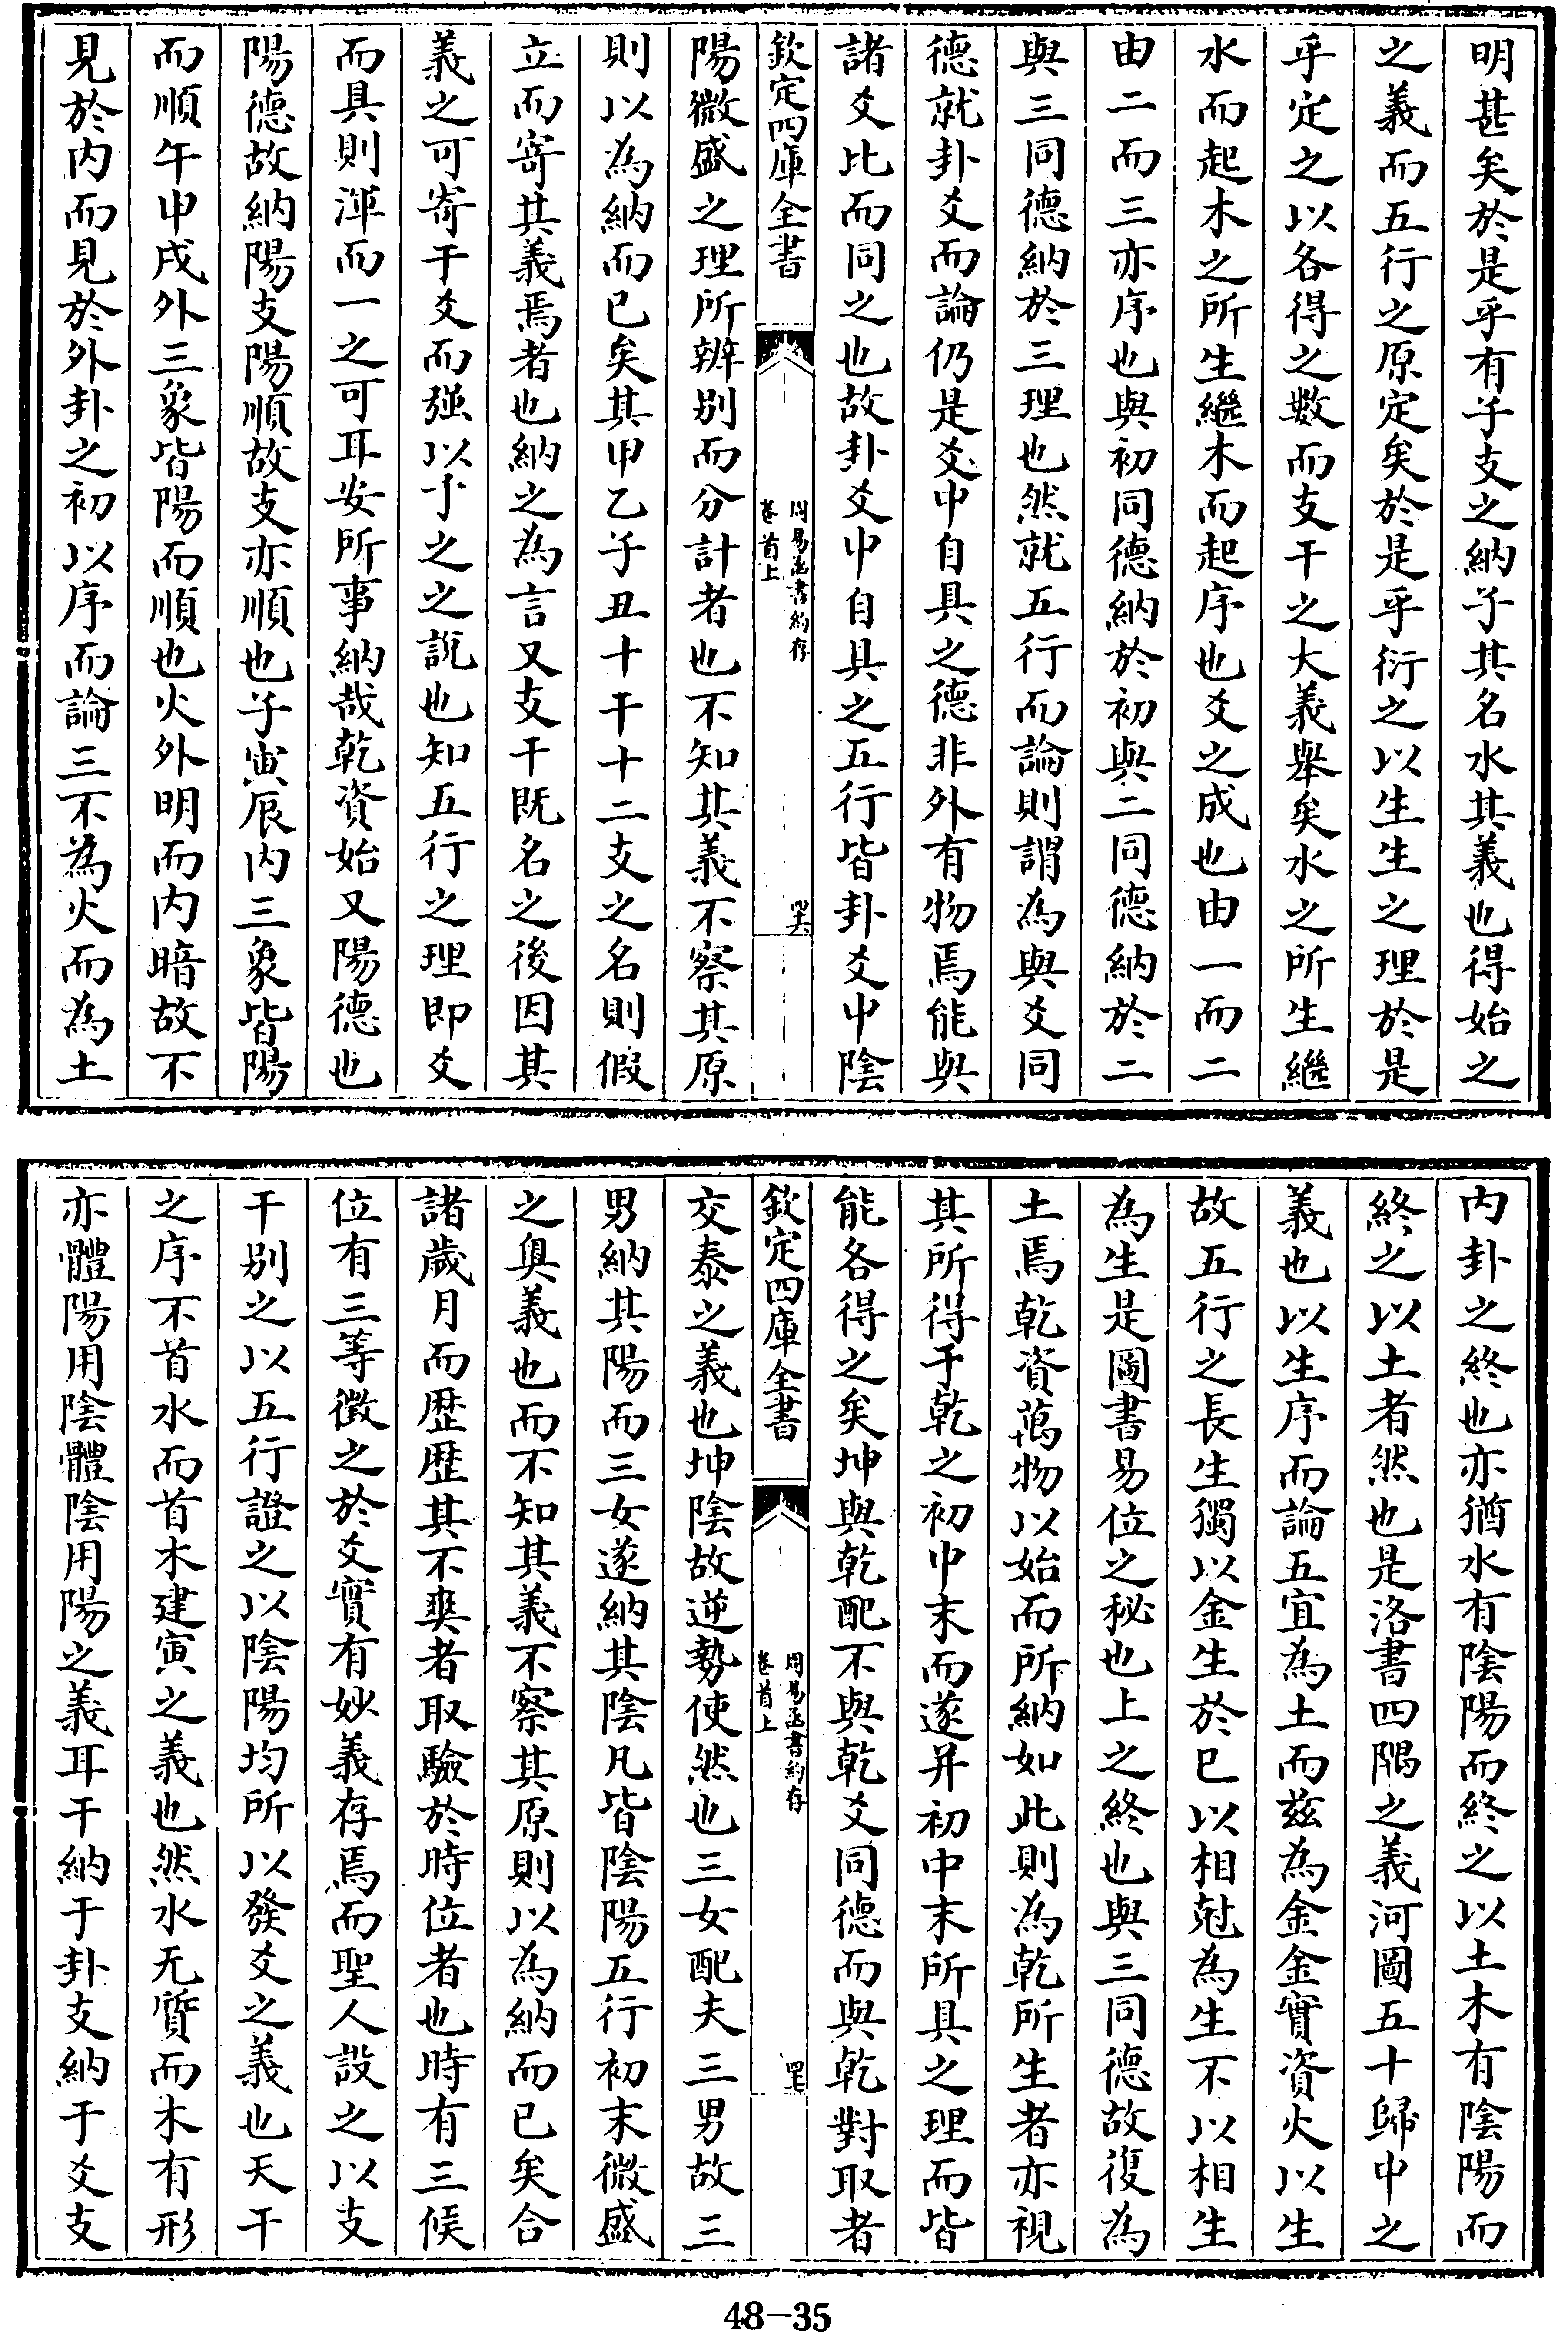 明甚矣於是乎有子支之納子其名水其義也得始之
之義而五行之原定矣於是乎衍之以生生之理於是
乎定之以各得之數而支干之大義舉矣水之所生繼
水而起木之所生繼木而起序也爻之成也由一而二
由二而三亦序也與初同德納於初與二同德納於二
與三同德納於三理也然就五行而論則謂為與爻同
德就卦爻而論仍是爻中自具之德非外有物焉能與
諸爻比而同之也故卦爻中自具之五行皆卦爻中陰
欽定四庫全書
周易函書約存
卷首上
四六
陽微盛之理所辨别而分計者也不知其義不察其原
則以為納而已矣其甲乙子丑十干十二支之名則假
立而寄其義焉者也納之為言又支干既名之後因其
義之可寄干爻而強以予之之說也知五行之理即爻
而具則渾而一之可耳安所事納哉乾資始又陽德也
陽德故納陽支陽順故支亦順也子寅辰内三象皆陽
而順午申戌外三象皆陽而順也火外明而内暗故不
見於内而見於外卦之初以序而論三不為火而為土
内卦之終也亦猶水有陰陽而終之以土木有陰陽而
終之以土者然也是洛書四隅之義河圖五十歸中之
義也以生序而論五宜為土而兹為金金實資火以生
故五行之長生獨以金生於巳以相尅為生不以相生
為生是圖書易位之秘也上之終也與三同德故復為
土焉乾資萬物以始而所納如此則為乾所生者亦視
其所得于乾之初中末而遂并初中末所具之理而皆
能各得之矣坤與乾配不與乾爻同德而與乾對取者
欽定四庫全書
周易函書約存
卷首上
四七
交泰之義也坤陰故逆勢使然也三女配夫三男故三
男納其陽而三女遂納其陰凡皆陰陽五行初末微盛
之奥義也而不知其義不察其原則以為納而已矣合
諸歲月而歴歴其不爽者取驗於時位者也時有三候
位有三等徵之於爻實有妙義存焉而聖人設之以支
干别之以五行證之以陰陽均所以發爻之義也天干
之序不首水而首木建寅之義也然水无質而木有形
亦體陽用陰體陰用陽之義耳干納于卦支納于爻支
48-35